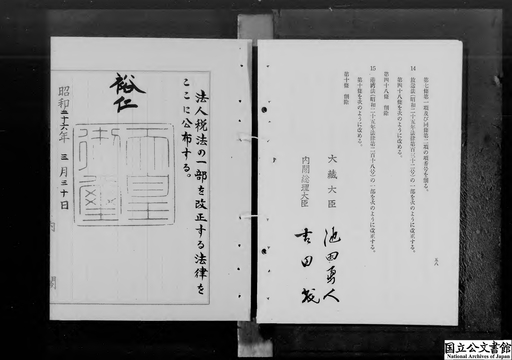 五八
第七條第一項及び同條第二項の項番号を削る。
14 放送法(昭和二十五年法律第百三十二号)の一部を次のように改正する。
第四十八條を次のように改める。
第四十八條 削除
15 港湾法(昭和二十五年法律第二百十八号)の一部を次のように改正する。
第十條を次のように改める。
第十條 削除
大藏大臣 池田勇人
内閣総理大臣 吉田茂
法人税法の一部を改正する法律を
ここに公布する。
裕仁
天皇御璽
昭和二十六年三月三十日
内閣
国立公文書館
National Archives of Japan